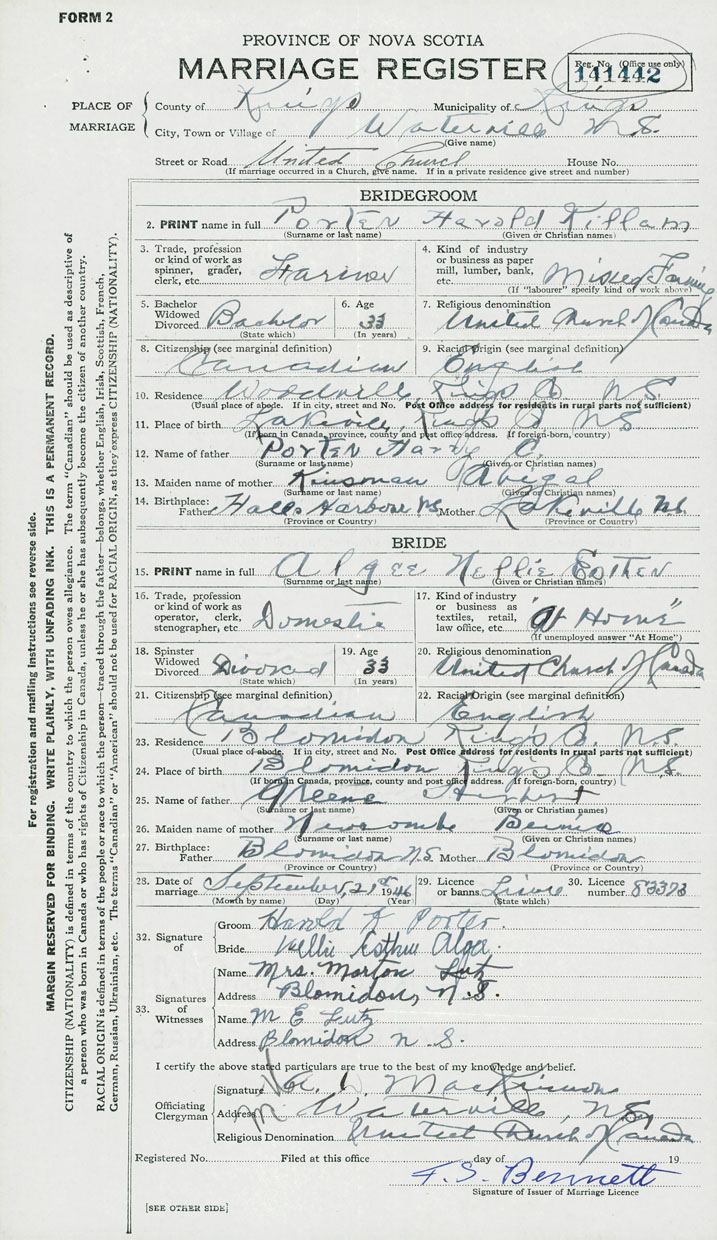 FORM 2
PROVINCE OF NOVA SCOTIA
MARRIAGE REGISTER
Reg. No. (Office use only)
141442
PLACE OF MARRIAGE
County of Kings Municipality of Kings
City, Town or Village of Waterville N.S.
(Give name)
Street or Road United Church House No.
(If marriage occurred in a Church, give name. If in a private residence give street and number)
BRIDEGROOM
2. PRINT name in full Porter Harold Killam
(Surname or last name) (Given or Christian names)
3. Trade, profession or kind of work as spinner, grader, clerk, etc. Farmer
4. Kind of industry or business as paper mill, lumber, bank, etc. Mixed Farming
(If "labourer" specify kind of work above)
5. Bachelor Widowed Divorced Bachelor
(State which)
6. Age 33
(In years)
7. Religious denomination United Church of Canada
8. Citizenship (see marginal definition) Canadian
9. Racial Origin (see marginal definition) English
10. Residence Woodville, Kings Co. N.S.
(Usual place of abode. If in city, street and No. Post Office address for residents in rural parts not sufficient)
11. Place of birth Lakeville, Kings Co N.S
(If born in Canada, province, county and post office address. If foreign-born, country)
12. Name of father Porter Harry C.
(Surname or last name) (Given or Christian names)
13. Maiden name of mother Kinsman Abigal
(Surname or last name) (Given or Christian names)
14. Birthplace: Father Halls Harbour NS Mother Lakeville N.S.
(Province or Country) (Province or Country)
BRIDE
15. PRINT name in full Algee Nellie Esther
(Surname or last name) (Given or Christian names)
16. Trade, profession or kind of work as operator, clerk, stenographer, etc Domestic
17. Kind of industry or business as textiles, retail, law office, etc. "At Home"
(If unemployed answer "At Home")
18. Spinster Widowed Divorced Divorced
(State which)
19. Age 33
(In years)
20. Religious denomination United Church of Canada
21. Citizenship (see marginal definition) Canadian
22. Racial Origin (see marginal definition) English
23. Residence Blomidon Kings Co. N.S.
(Usual place of abode. If in city, street and No. Post Office address for residents in rural parts not sufficient)
24. Place of birth Blomidon Kings Co. N.S.
(If born in Canada, province, county and post office address. If foreign-born, country)
25. Name of father Greene
(Surname or last name) (Given or Christian names)
26. Maiden name of mother Newcombe
(Surname or last name) (Given or Christian names)
27. Birthplace: Father Blomidon N.S. Mother Blomidon
(Province or Country) (Province or Country)
28. Date of marriage September, 21st 1946
(Month by name) (Day) (Year)
29. Licence or banns
(State which)
30. Licence number 83373
32. Signature of
Groom Harold K Porter
Bride Nellie Esther Algee
33. Signatures of Witnesses
Name Mrs. Morton Lutz
Address Blomidon, N.S.
Name M E Lutz
Address Blomidon N.S.
I certify the above stated particulars are true to the best of my knowledge and belief.
Officiating Clergyman
Signature MacKinnon
Address Waterville, N.S.
Religious Denomination United Church of Canada
Registered No. Filed at this office day of 19
F.S. Bennett
Signature of Issuer of Marriage Licence
[SEE OTHER SIDE]
For registration and mailing instructions see reverse side.
MARGIN RESERVED FOR BINDING. WRITE PLAINLY, WITH UNFADING INK. THIS IS A PERMANENT RECORD.
CITIZENSHIP (NATIONALITY) is defined in terms of the country to which the person owes allegiance. The term "Canadian" should be used as descriptive of
a person who was born in Canada or who has rights of Citizenship in Canada, unless he or she has subsequently become the citizen of another country.
RACIAL ORIGIN is defined in terms of the people or race to which the person—traced through the father—belongs, whether English, Irish, Scottish, French,
German, Russian, Ukrainian, etc. The terms "Canadian" or "American" should not be used for RACIAL ORIGIN, as they express CITIZENSHIP (NATIONALITY).